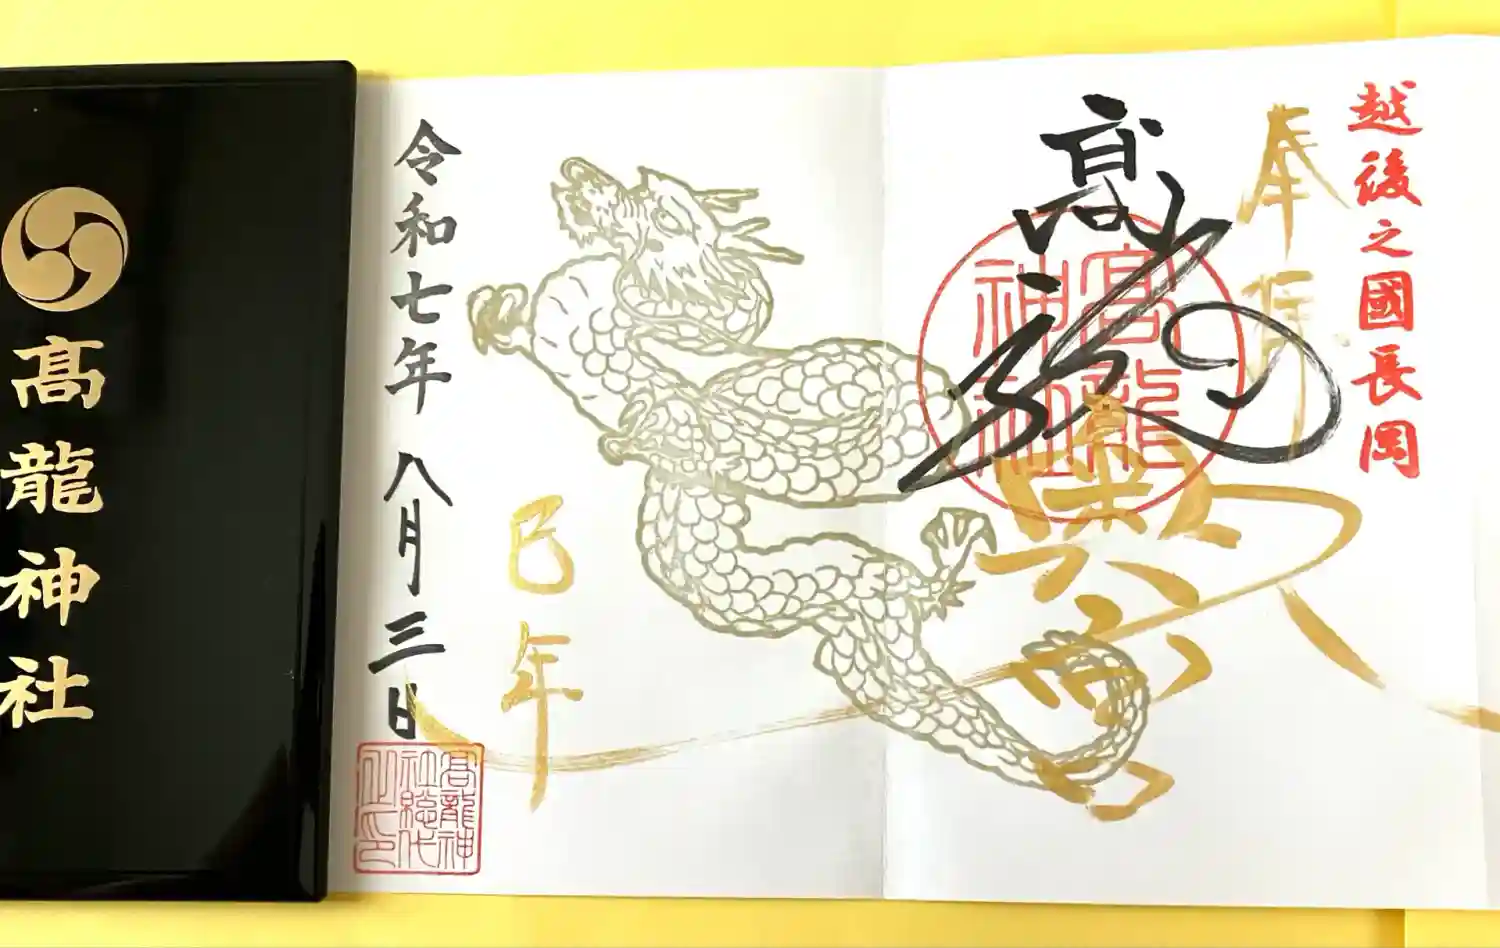 越後之國長岡
奉拝
髙龍
髙龍
神社
巳年
令和七年 八月三日
髙龍神
社総代
之印
髙龍神社